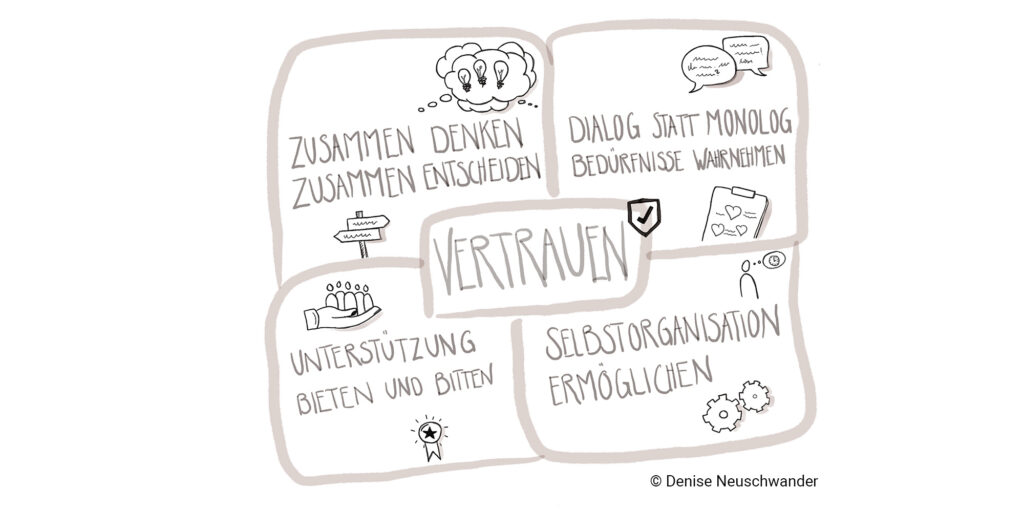 ZUSAMMEN DENKEN
ZUSAMMEN ENTSCHEIDEN
DIALOG STATT MONOLOG
BEDÜRFNISSE WAHRNEHMEN
VERTRAUEN
UNTERSTÜTZUNG
BIETEN UND BITTEN
SELBSTORGANISATION
ERMÖGLICHEN
© Denise Neuschwander